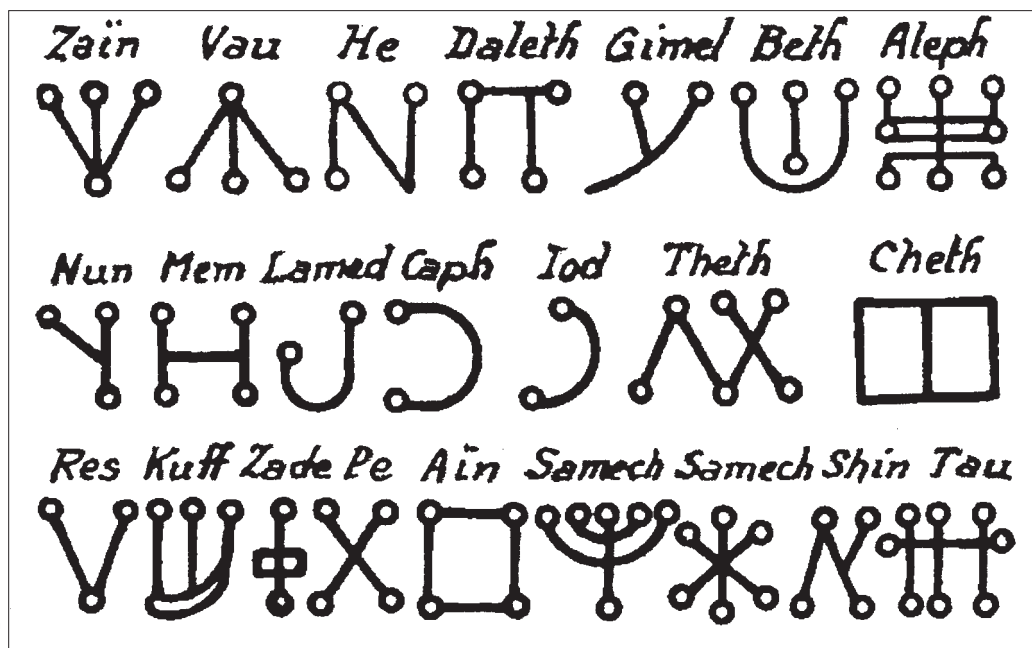 Zaïn Vau He Daleth Gimel Beth Aleph
Nun Mem Lamed Caph Iod Theth Cheth
Res Kuff Zade Pe Aïn Samech Samech Shin Tau